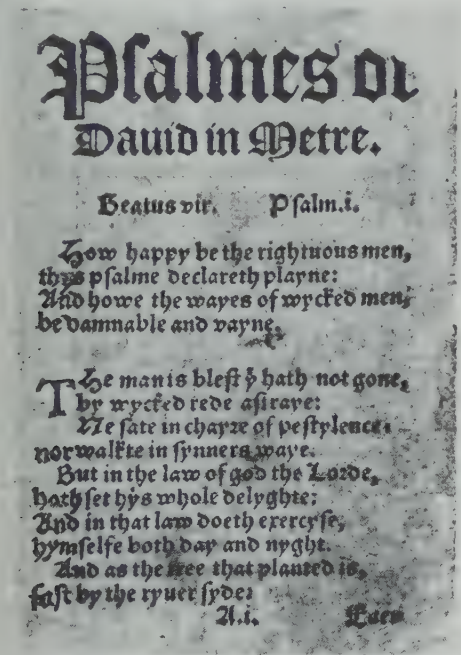 Psalmes of
Dauid in Metre.
Beatus vir. Psalm.i.
How happy be the rightuous men,
thys psalme declareth playne:
And howe the wayes of wycked men,
be damnable and vayne.
THe man is blest yͭ hath not gone,
by wycked rede astraye:
Ne sate in chayre of pestylence,
nor walkte in synners waye.
But in the law of god the Lorde,
hath set hys whole delyghte:
And in that law doeth exercyse,
hymselfe both day and nyght.
And as the tree that planted is,
fast by the ryuer syde:
A.i. Euen